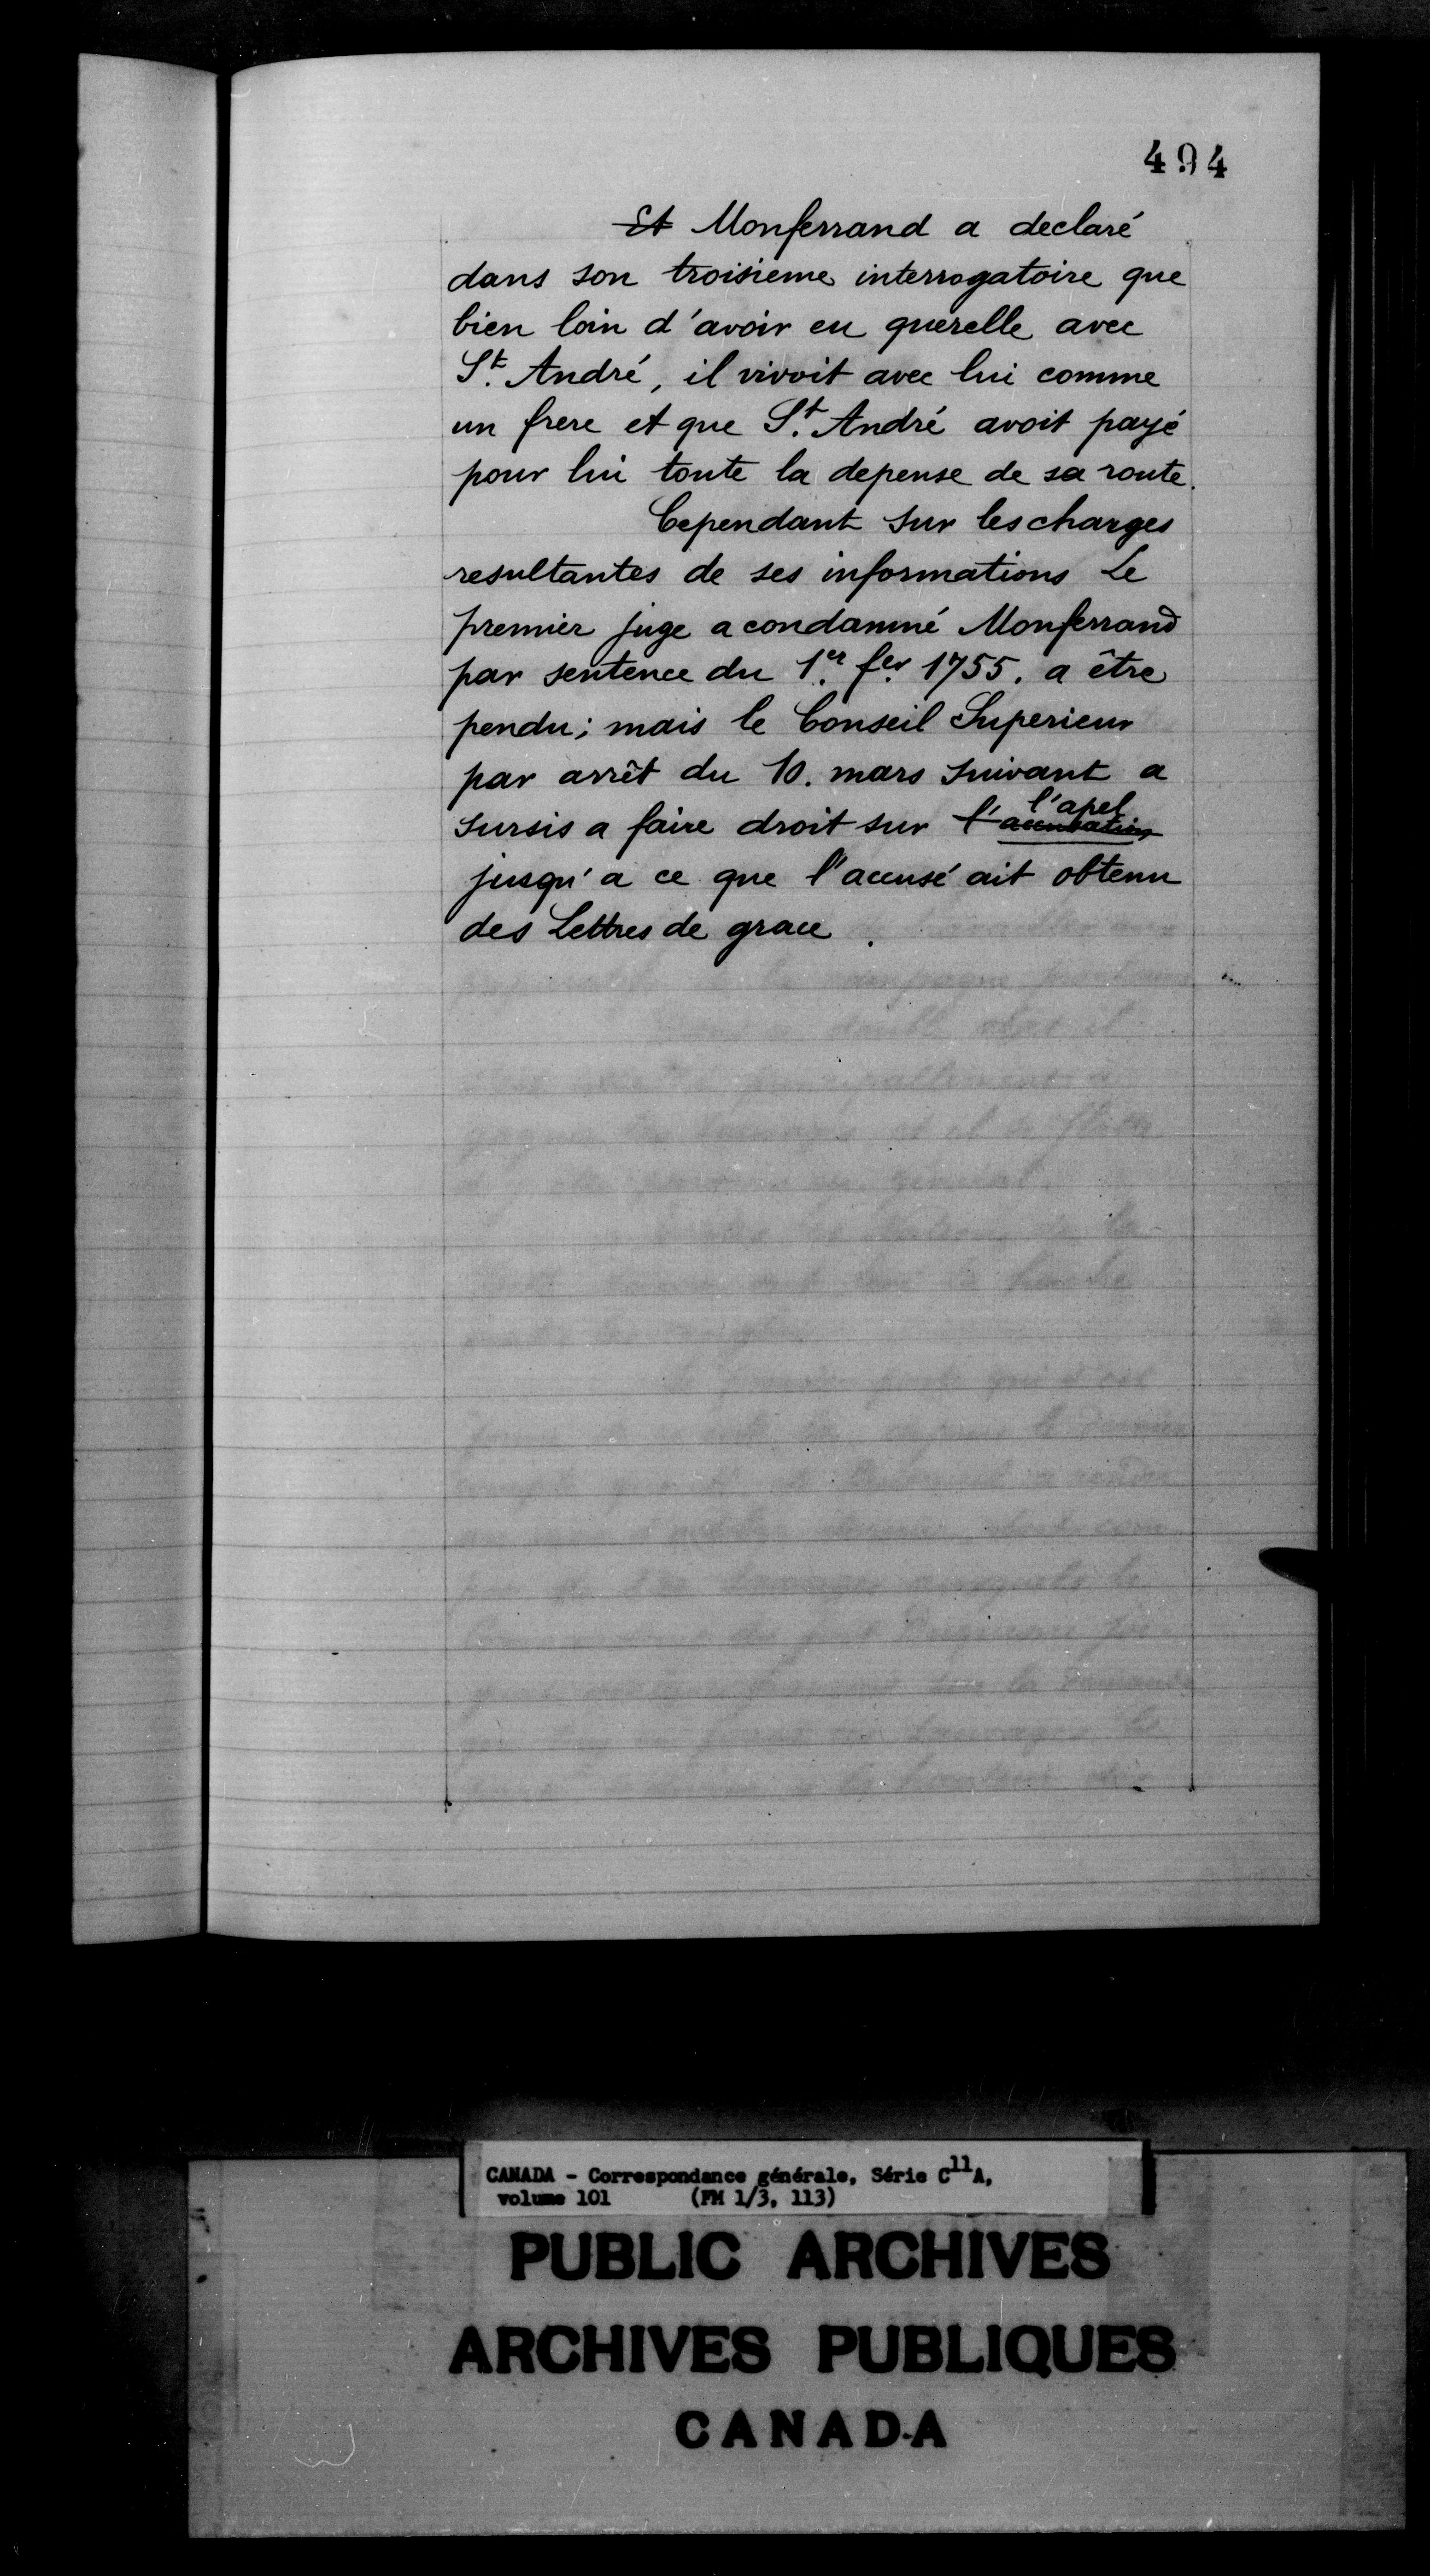 494
Et Monferrand a declaré
dans son troisieme interrogatoire que
bien loin d'avoir eu querelle avec
St. André, il vivoit avec lui comme
un frere et que St. André avoit payé
pour lui toute la depense de sa route.
Cependant sur les charges
resultantes de ses informations Le
premier juge a condamné Monferrand
par sentence du 1.er fer. 1755. a être
pendu; mais le Conseil Superieur
par arrêt du 10. mars suivant a
l'apel
sursis a faire droit sur l'accusation
jusqu'a ce que l'accusé ait obtenu
des Lettres de grace.
CANADA - Correspondance générale, Série C11A,
volume 101 (FM 1/3, 113)
PUBLIC ARCHIVES
ARCHIVES PUBLIQUES
CANADA